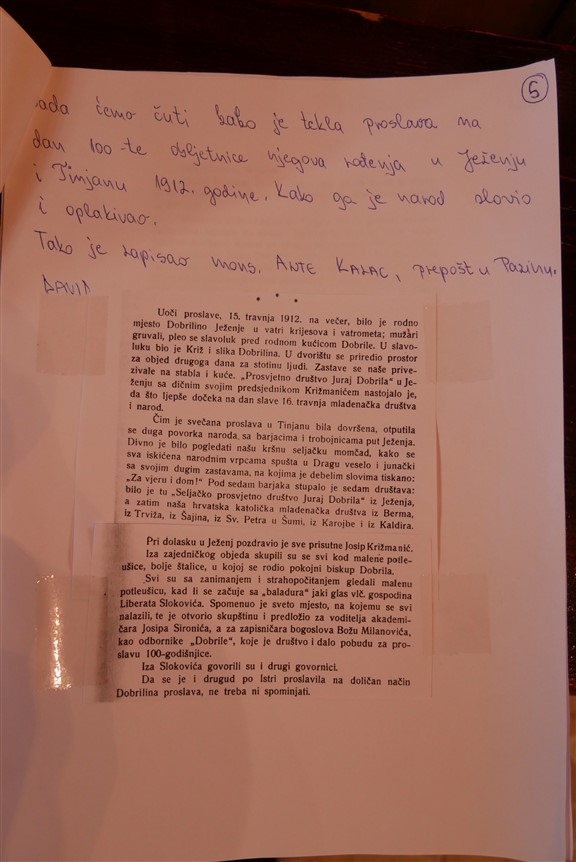 5
ada ćemo čuti kako je tekla proslava na
dan 100-te obljetnice njegova rođenja u Ježenju
i Tinjanu 1912. godine. Kako ga je narod slavio
i oplakivao.
Tako je zapisao mons. ANTE KALAC, prepošt u Pazinu.
DAVID
* * *
Uoči proslave, 15. travnja 1912. na večer, bilo je rodno
mjesto Dobrilino Ježenje u vatri krijesova i vatrometa; mužari
gruvali, pleo se slavoluk pred rodnom kućicom Dobrile. U slavo-
luku bio je Križ i slika Dobrilina. U dvorištu se priredio prostor
za objed drugoga dana za stotinu ljudi. Zastave se naše prive-
zivale na stabla i kuće. „Prosvjetno društvo Juraj Dobrila" u Je-
ženju sa dičnim svojim predsjednikom Križmanićem nastojalo je,
da što ljepše dočeka na dan slave 16. travnja mlađenačka društva
i narod.
Čim je svečana proslava u Tinjanu bila dovršena, otputila
se duga povorka naroda, sa barjacima i trobojnicama put Ježenja.
Divno je bilo pogledati našu kršnu seljačku momčad, kako se
sva iskićena narodnim vrpcama spušta u Dragu veselo i junački
sa svojim dugim zastavama, na kojima je debelim slovima tiskano:
„Za vjeru i dom!" Pod sedam barjaka stupalo je sedam društava:
bilo je tu „Seljačko prosvjetno društvo Juraj Dobrila" iz Ježenja,
a zatim naša hrvatska katolička mlađenačka društva iz Berma,
iz Trviža, iz Šajina, iz Sv. Petra u Šumi, iz Karojbe i iz Kaldira.
Pri dolasku u Ježenj pozdravio je sve prisutne Josip Križmanić.
Iza zajedničkog objeda skupili su se svi kod malene potle-
ušice, bolje štalice, u kojoj se rodio pokojni biskup Dobrila.
Svi su sa zanimanjem i strahopočitanjem gledali malenu
potleušicu, kad li se začuje sa „baladura" jaki glas vlč. gospodina
Liberata Slokovića. Spomenuo je sveto mjesto, na kojemu se svi
nalazili, te je otvorio skupštinu i predložio za voditelja akademi-
čara Josipa Sironića, a za zapisničara bogoslova Božu Milanovića,
kao odbornike „Dobrile", koje je društvo i dalo pobudu za pro-
slavu 100-godišnjice.
Iza Slokovića govorili su i drugi govornici.
Da se je i drugud po Istri proslavila na doličan način
Dobrilina proslava, ne treba ni spominjati.